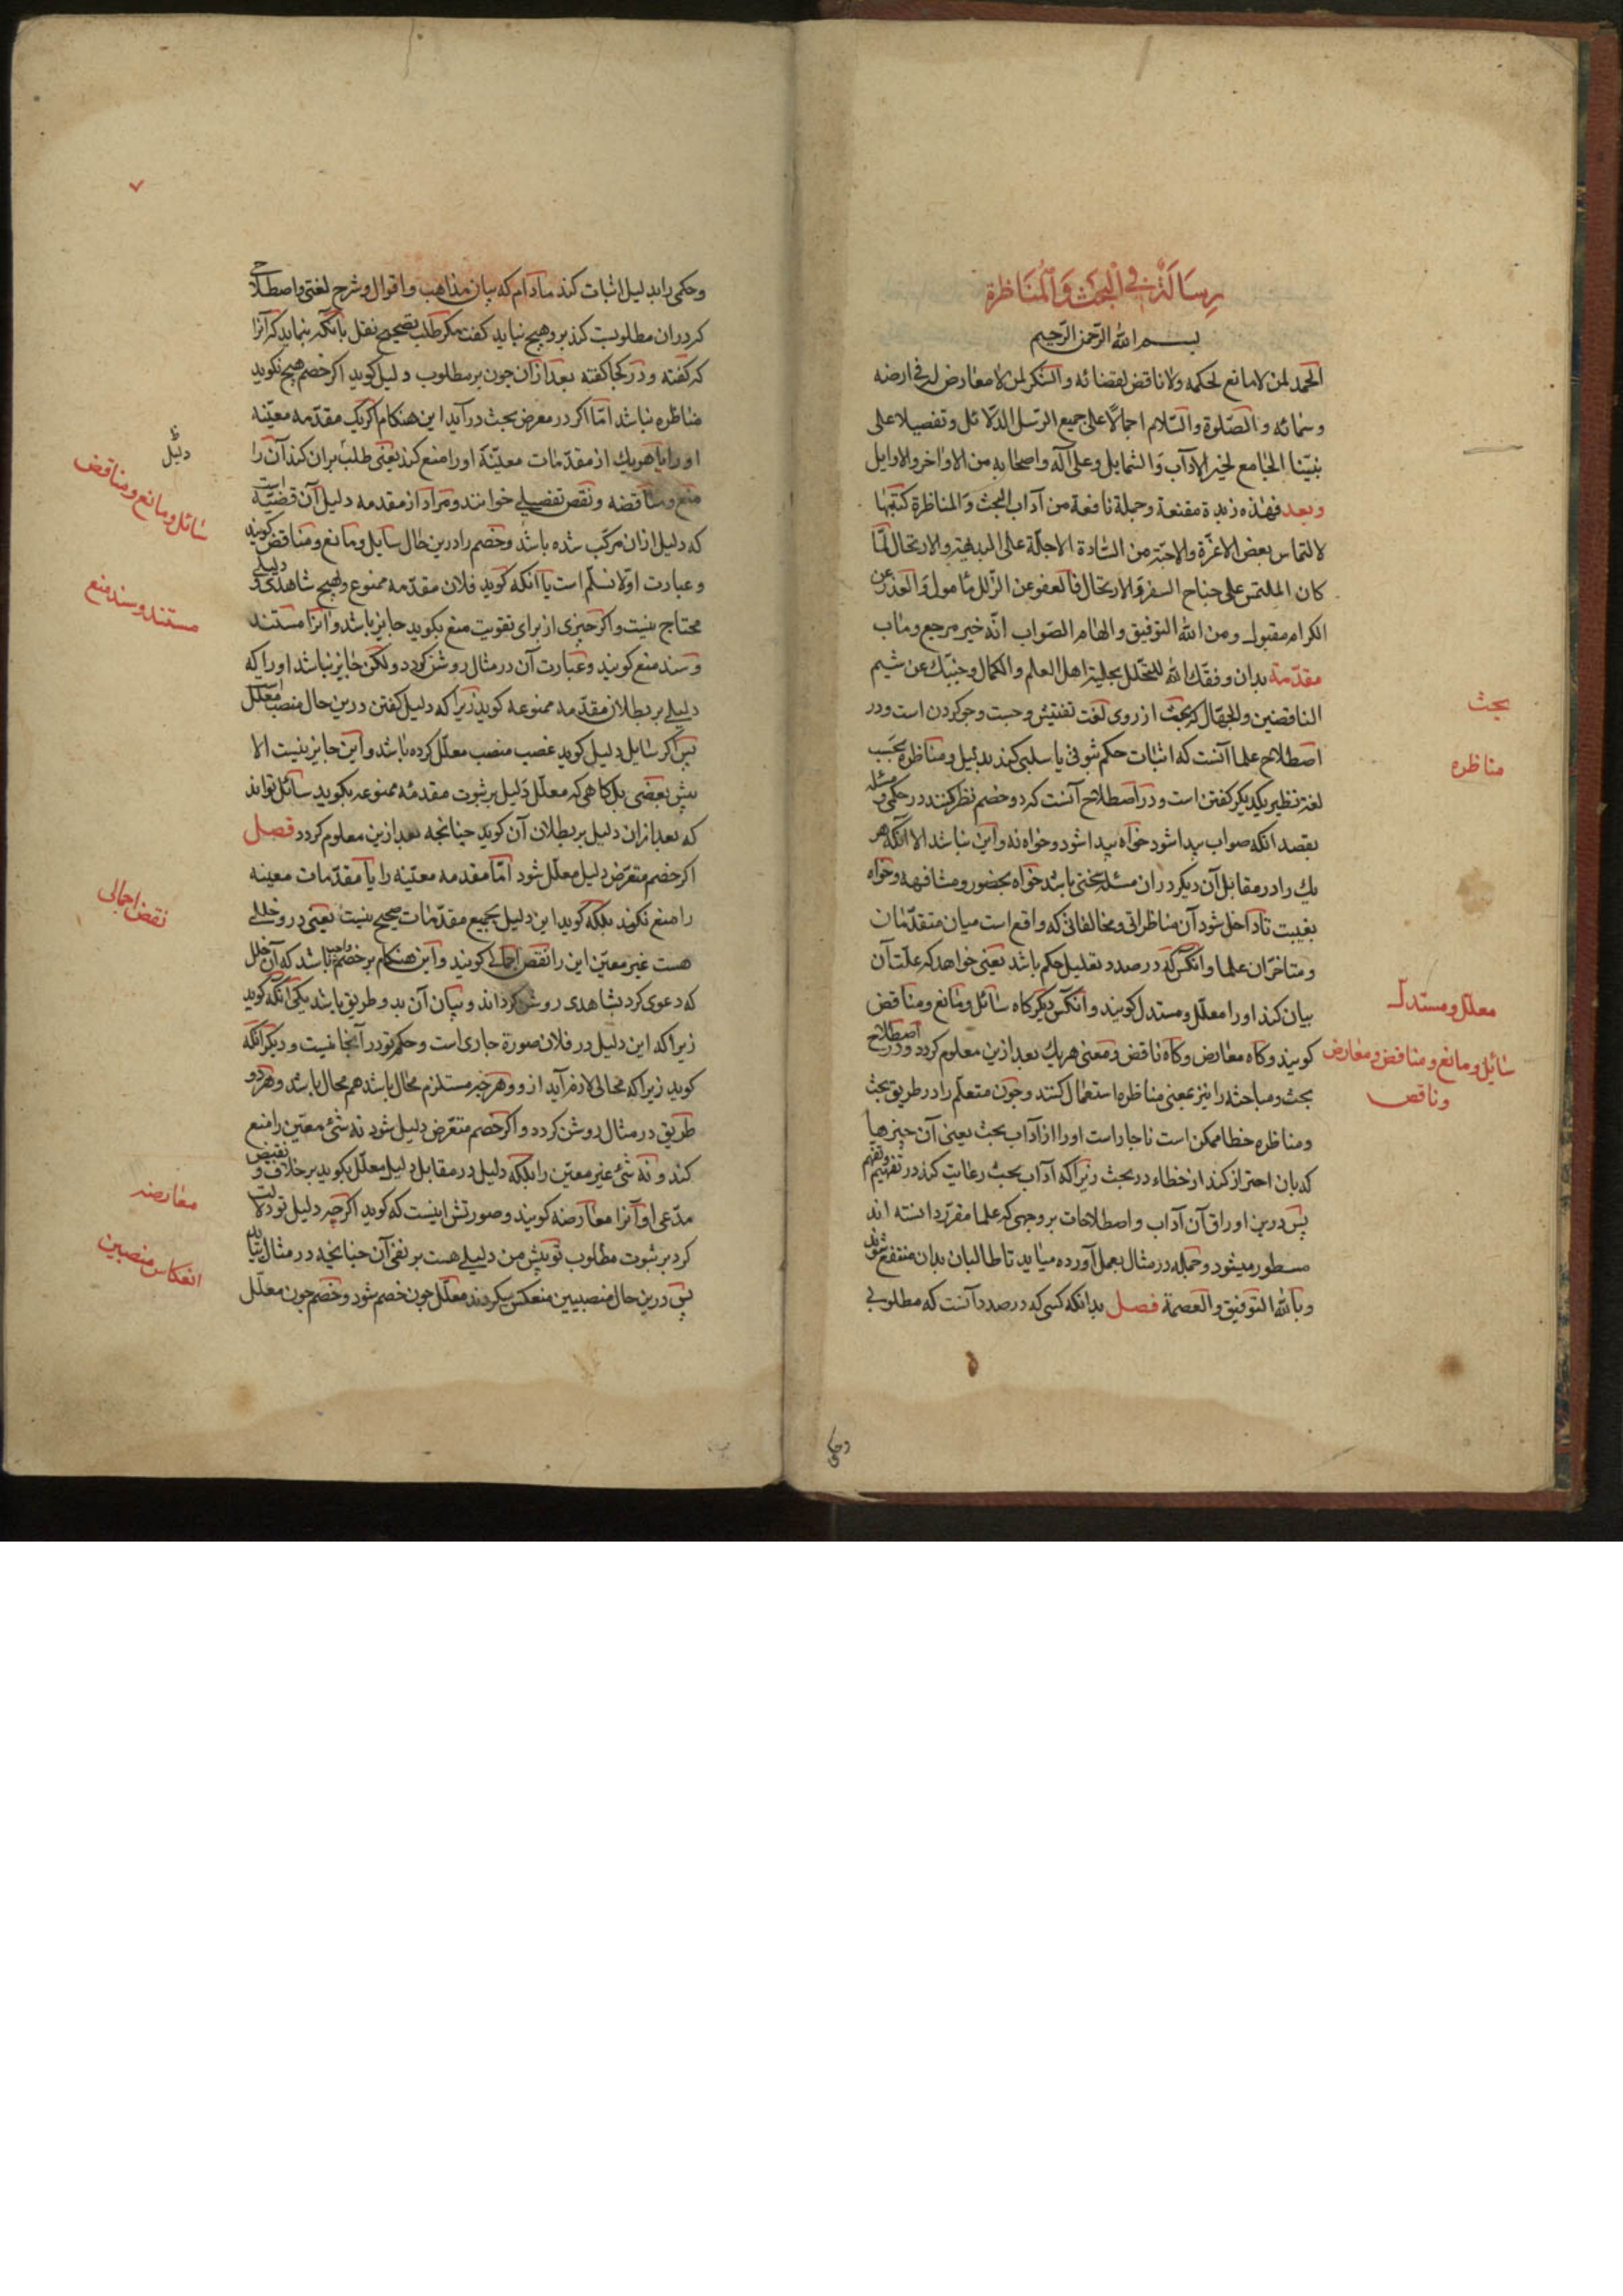 رسالة في البحث والمناظرة
بسم الله الرحمن الرحيم
الحمد لمن لا مانع لحكمه ولا ناقض لقضائه والشكر لمن لا معارض له في ارضه
وسمائه والصلوة والسلام اجمالا على جميع الرسل الدلائل وتفصيلا على
نبينا الجامع لخير الاداب والشمايل وعلى آله واصحابه من الاواخر والاوايل
وبعد فهذه زبدة مقنعة وجملة نافعة من آداب البحث والمناظرة كتبتها
لالتماس بعض الاعزة والاحبة من السادة الاجلة على البديهة والارتحال لما
كان الملتمس على جناح السفر والارتحال فالعفو عن الزلل مأمول والعذر عن
الكرام مقبول ومن الله التوفيق والهام الصواب انه خير مرجع ومآب
مقدمة بدان وفقك الله للتحلل بحلية اهل العلم والكمال وجنبك عن شيم
الناقضين والجهال كه بحث از روى لغت تفتيش وجست وجو كردن است ودر
اصطلاح علما آنست كه اثبات حكم ثبوتى يا سلبى كند بدليل ومناظره بحسب
لغة نظير يكديكر كفتن است ودر اصطلاح آنست كه دو خصم نظر كنند در حكمى ومسئله
بقصد آنكه صواب پيدا شود خواه پيدا شود وخواه نه واين نباشد الا آنكه هر
يك را در مقابل آن ديكر در ان مسئله سخنى باشد خواه بحضور ومشافهه وخواه
بغيبت تا داخل شود آن مناظراتى ومخالفاتى كه واقع است ميان متقدمان
ومتاخران علما وآنكس كه در صدد تعليل حكم باشد يعنى خواهد كه علت آن
بيان كند او را معلل ومستدل كويند وآنكس ديكر كاه سائل ومانع ومناقض
كويند وكاه معارض وكاه ناقض ومعنى هر يك بعد ازين معلوم كردد ودر اصطلاح
بحث ومباحثه را نيز بمعنى مناظره استعمال كنند وچون متعلم را در طريق بحث
ومناظره خطا ممكن است ناچار است او را از آداب بحث يعنى آن چيزها
كه بان احتراز كند از خطاء در بحث زيرا كه آداب بحث رعايت كند در تفهيم وتفهم
پس درين اوراق آن آداب واصطلاحات بر وجهى كه علما مقرر دانسته اند
مسطور ميشود وجمله در مثال بعمل آورده ميآيد تا طالبان بدان منتفع شوند
وبالله التوفيق والعصمة فصل بدانكه كسى كه در صدد آنست كه مطلوبى
وحكمى
بحث
مناظره
معلل ومستدل
سائل ومانع ومناقض ومعارض
وناقض
٧
وحكمى را بدليل اثبات كند مادام كه بيان مذاهب واقوال وشرح لغتى واصطلاحى
كه در ان مطلوبست كند برو هيچ نبايد كفت مكر طلب تصحيح نقل بآنكه بنمايد كه آنرا
كه كفته ودر كجا كفته بعد از آن چون بر مطلوب دليل كويد اكر خصم هيچ نكويد
مناظره نباشد اما اكر در معرض بحث درآيد اين هنكام اكر يك مقدمه معينه
او را يا هر يك از مقدمات معينة او را منع كند يعنى طلب بران كند آن را
منع ومناقضه ونقض تفصيلى خوانند ومراد از مقدمه دليل آن قضيه است
كه دليل از ان مركب شده باشد وخصم را درين حال سايل ومانع ومناقض كويند
وعبارت او لا نسلم است يا آنكه كويد فلان مقدمه ممنوع وهيچ شاهدى ودليلى
محتاج نيست واكر چيزى از براى تقويت منع بكويد جايز باشد وآنرا مستند
وسند منع كويند وعبارت آن در مثال روشن كردد ولكن جايز نباشد او را كه
دليلى بر بطلان مقدمه ممنوعه كويد زيرا كه دليل كفتن درين حال منصب معلل است
پس اكر سايل دليل كويد غصب منصب معلل كرده باشد واين جايز نيست الا
پيش بعضى بل كاهى كه معلل دليل بر ثبوت مقدمه ممنوعه بكويد سائل تواند
كه بعد از ان دليل بر بطلان آن كويد چنانچه بعد ازين معلوم كردد فصل
اكر خصم متعرض دليل معلل شود اما مقدمه معينه را يا مقدمات معينه
را منع نكند بلكه كويد اين دليل بجميع مقدمات صحيح نيست يعنى در و خللى
هست غير معين اين را نقض اجمالى كويند واين هنكام بر خصم واجب باشد كه آن خلل
كه دعوى كرد بشاهدى روشن كرداند وبيان آن بدو طريق باشد يكى آنكه كويد
زيرا كه اين دليل در فلان صورة جارى است وحكم تو در آنجا نيست وديكر آنكه
كويد زيرا كه محالى لازم آيد ازو وهر چيز مستلزم محال باشد هم محال باشد وهر دو
طريق در مثال روشن كردد واكر خصم متعرض دليل شود نه شئ معين را منع
كند ونه شئ غير معين را بلكه دليل در مقابل دليل معلل بكويد بر خلاف ونقيض
مدعى او آنرا معارضه كويند وصورتش اينست كه كويد اكرچه دليل تو دلالت
كرد بر ثبوت مطلوب تو پيش من دليلى هست بر نفى آن چنانچه در مثال بيايد
پس درين حال منصبين منعكس ميكردند معلل چون خصم شود وخصم چون معلل
دليل
سائل ومانع ومناقض
مستند وسند منع
نقض اجمالى
معارضه
انعكاس منصبين